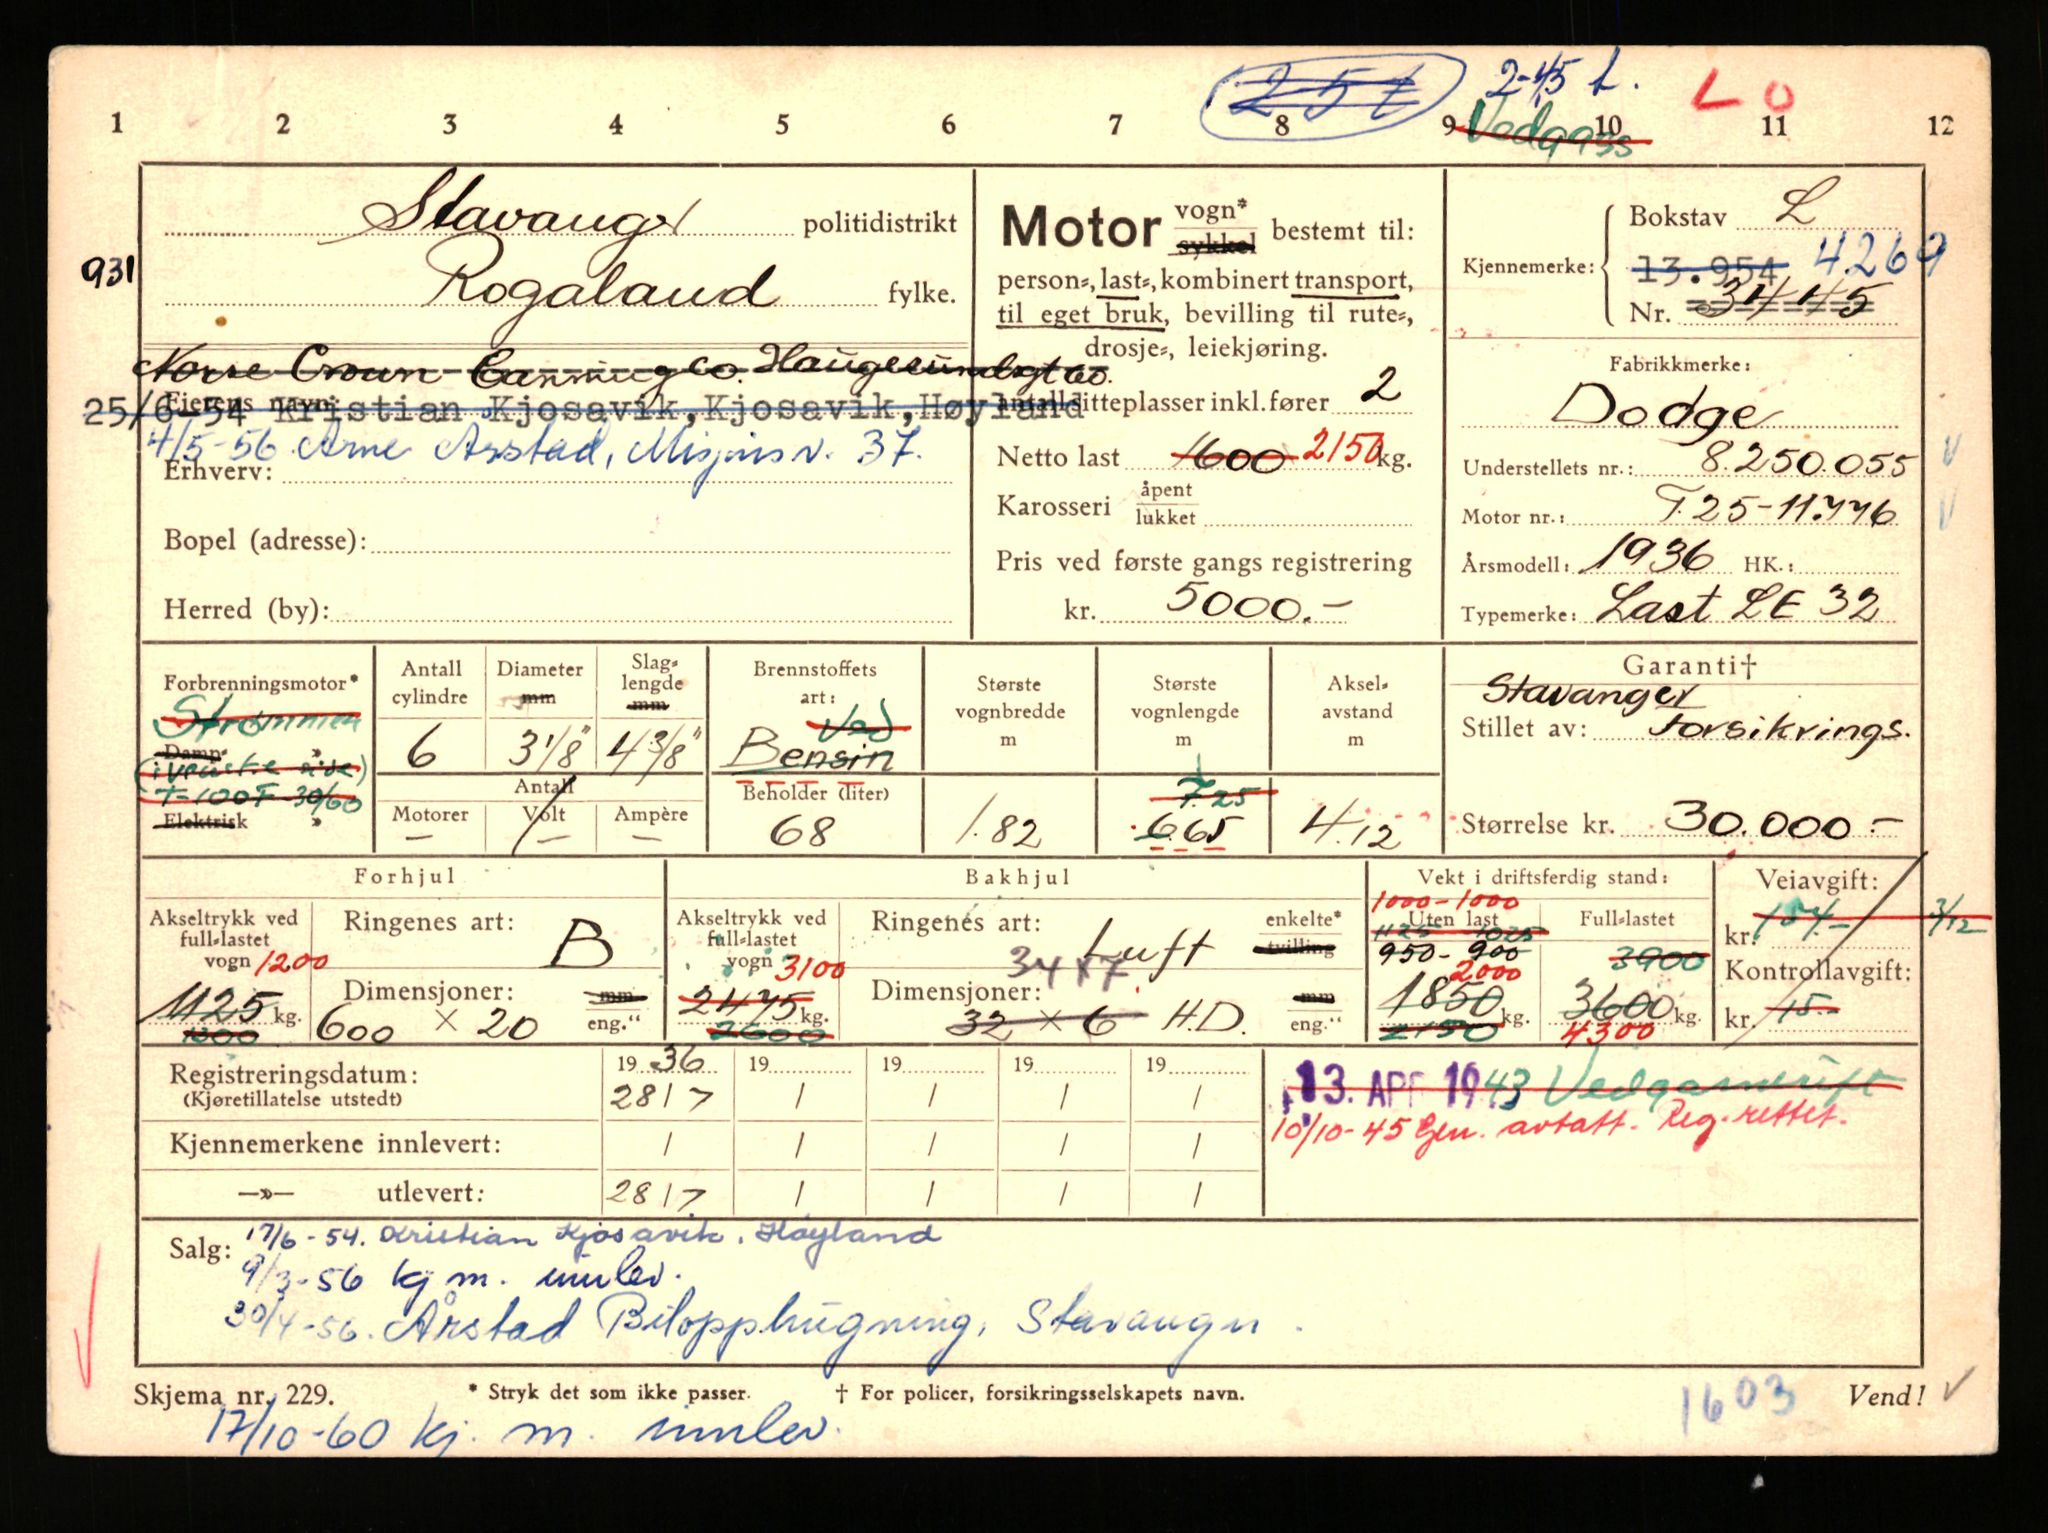 251 2-45 L. L O
1 2 3 4 5 6 7 8 9 10 11 12
Vedgass
Stavanger politidistrikt
931
Rogaland fylke.
Norse Crown Canning Co. Haugesundsgt 60.
Eierens navn:
25/6-54 Kristian Kjosavik, Kjosavik, Høyland
4/5-56 Arne Årstad, Misjonsv. 37.
Erhverv:
Bopel (adresse):
Herred (by):
Motor vogn* sykkel bestemt til:
person-, last-, kombinert transport,
til eget bruk, bevilling til rute-,
drosje-, leiekjøring.
antall sitteplasser inkl. fører 2
Netto last 1600 2150 kg.
Karosseri åpent lukket
Pris ved første gangs registrering
kr. 5000.-
Bokstav L
Kjennemerke: 13.954 4269
Nr. 3445
Fabrikkmerke:
Dodge
Understellets nr.: 8.250.055
Motor nr.: T.25-11.446
Årsmodell: 1936 HK.:
Typemerke: Last LE 32
Forbrenningsmotor*
Strømmen
Damp- »
T-100F 30/60
Elektrisk »
Antall cylindre
6
Diameter mm
3 1/8"
Slag-lengde mm
4 3/8"
Antall
Motorer Volt Ampère
— — —
Brennstoffets art:
Ved
Bensin
Beholder (liter)
68
Største vognbredde m
1.82
Største vognlengde m
7.25
6.65
Aksel-avstand m
4.12
Garanti†
Stavanger
Stillet av: Forsikrings.
Størrelse kr. 30.000.-
Forhjul
Akseltrykk ved full-lastet vogn 1200
1125 kg.
Ringenes art: B
Dimensjoner: mm
600 × 20 eng."
Bakhjul
Akseltrykk ved full-lastet vogn 3100
2475 kg.
2600
Ringenes art: Luft enkelte* tvilling
34 x 7
Dimensjoner: mm
32 × 6 H.D. eng."
Vekt i driftsferdig stand:
1000-1000
Uten last Full-lastet
1125 1025
950-900 3900
2000
1850 kg. 3600 kg.
2150 4300
Veiavgift:
kr. 3/12
Kontrollavgift:
kr. 15.-
Registreringsdatum: 19 36 19 19 19 19
(Kjøretillatelse utstedt) 28/7 / / / /
Kjennemerkene innlevert: / / / / /
—»— utlevert: 28/7 / / / /
13. APR 1943 Vedgassdrift
10/10-45 Gen. avtatt. Reg. rettet.
Salg: 17/6-54. Kristian Kjosavik, Høyland
9/3-56 kj m. innlev.
30/4-56. Årstad Bilopphugning, Stavanger.
Skjema nr. 229. * Stryk det som ikke passer. † For policer, forsikringsselskapets navn. 1603 Vend!
17/10-60 kj. m. innlev.